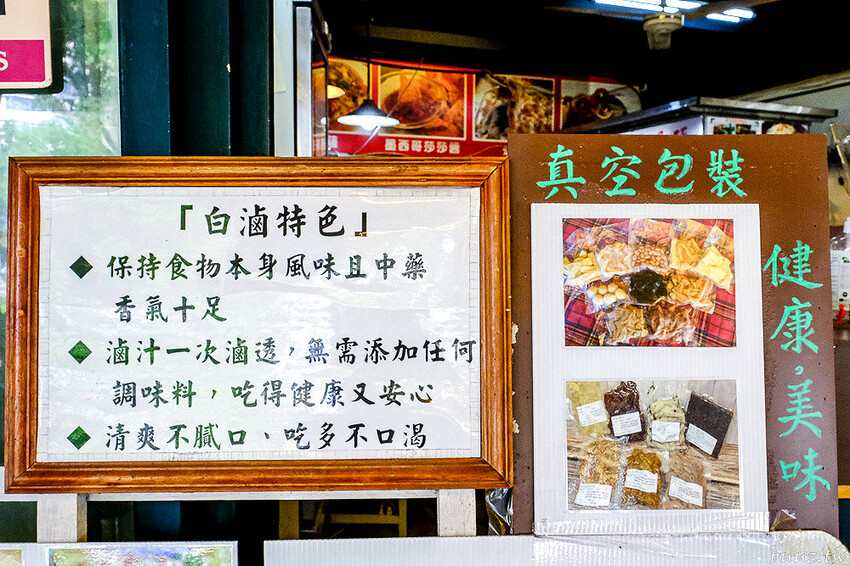 S
墨西哥莎莎醬
「白滷特色」
保持食物本身風味且中藥
香氣十足
滷汁一次滷透，無需添加任何
調味料，吃得健康又安心
清爽不膩口、吃多不口渴
真空包裝
健康，美味